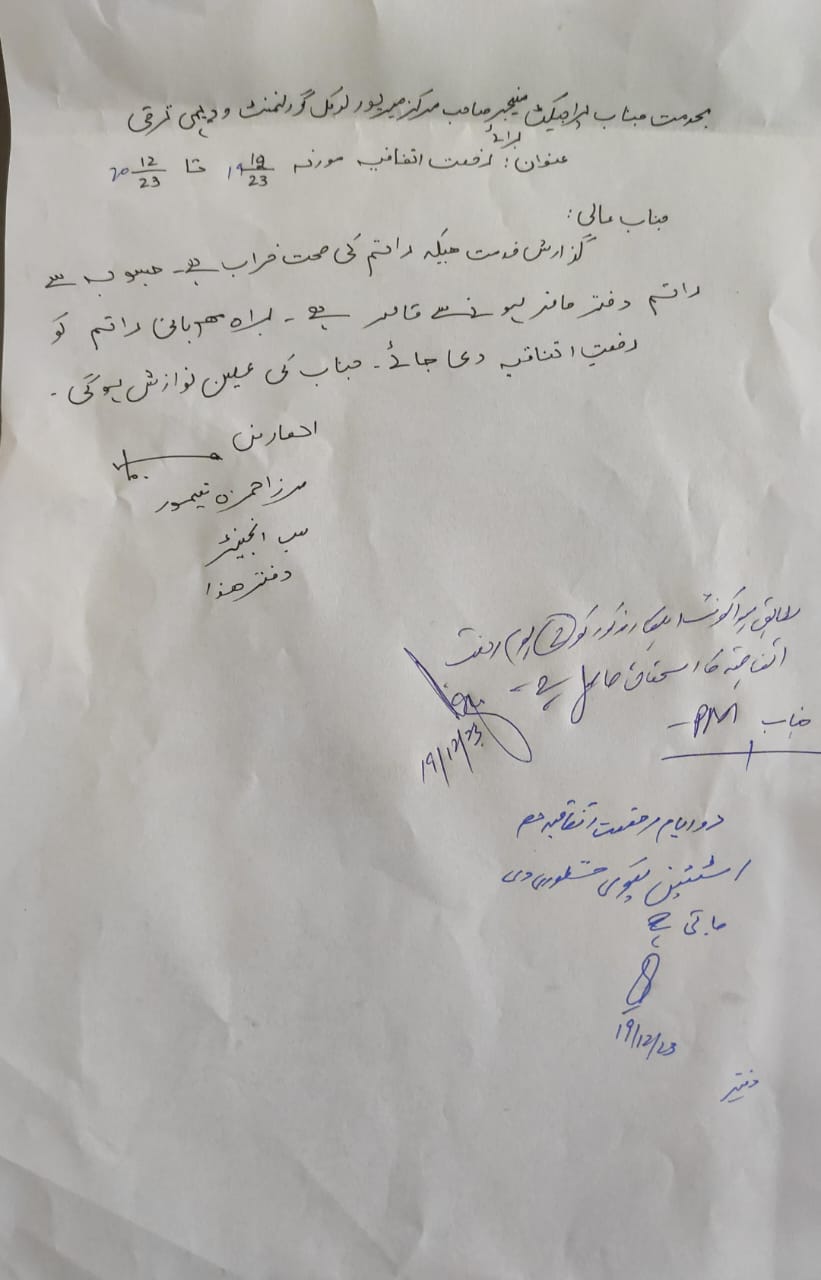 بخدمت جناب پراجیکٹ منیجر صاحب مرکز میرپور لوکل گورنمنٹ و دیہی ترقی
عنوان: برائے رخصت اتفاقیہ مورخہ 19 12/23 تا 20 12/23
جناب عالی:
گزارش خدمت ہیکہ راقم کی صحت خراب ہے۔ جسوجہ سے
راقم دفتر حاضر ہونے سے قاصر ہے۔ براہ مہربانی راقم کو
رخصت اتفاقیہ دی جائے۔ جناب کی عین نوازش ہوگی۔
العارض
مرزا حمزہ تیمور
سب انجینئر
دفتر ھذا
مطابق لیو اکونٹ اہلکار مذکور کو یوم رخصت
اتفاقیہ کا استحقاق حاصل ہے۔
19/12/23
جناب PM
دو ایام رخصت اتفاقیہ معہ
اسٹیشن لیو کی منظوری دی
جاتی ہے
19/12/23
دفتر